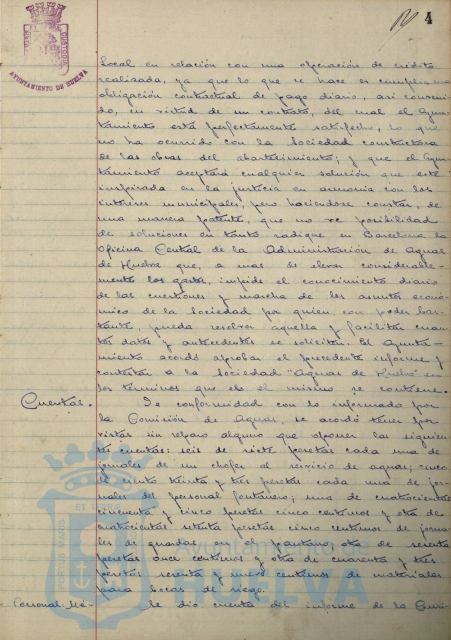 4
AYUNTAMIENTO DE HUELVA
local en relación con una operación de crédito
realizada, ya que lo que se hace es cumplir una
obligación contractual de pago diario, así conveni-
do, en virtud de un contrato, del cual el Ayun-
tamiento está perfectamente satisfecho, lo que
no ha ocurrido con la Sociedad constructora
de las obras del abastecimiento; y que el Ayun-
tamiento aceptará cualquier solución que esté
inspirada en la justicia en armonía con los
intereses municipales, pero haciéndose constar, de
una manera patente, que no ve posibilidad
de soluciones en tanto radique en Barcelona la
Oficina Central de la Administración de Aguas
de Huelva que, a mas de elevar considerable-
mente los gastos, impide el conocimiento diario
de las cuestiones y marcha de los asuntos econó-
mico de la Sociedad por quien, con poder bas-
tante, pueda resolver aquella y facilitar cuan-
tos datos y antecedentes se soliciten. El Ayunta-
miento acordó aprobar el precedente informe y
contestar a la Sociedad "Aguas de Huelva" en
los términos que en el mismo se contiene.
Cuentas. De conformidad con lo informado por
la Comisión de Aguas, se acordó tener por
vistas sin reparo alguno que oponer las siguien-
tes cuentas: seis de siete pesetas cada una de
jornales de un chofer al servicio de aguas; cinco
de ciento treinta y tres pesetas cada una de jor-
nales del personal fontanero; una de cuatrocientas
cincuenta y cinco pesetas cinco centimos y otra de
cuatrocientas setenta pesetas cinco centimos de jorna-
les de guardas en el pantano; otra de sesenta
pesetas once centimos y otra de cuarenta y tres
pesetas sesenta y nueve centimos de materiales
para bocas de riego.
Personal Mé- Se dio cuenta del informe de la Comi-
Ayuntamiento de
HUELVA